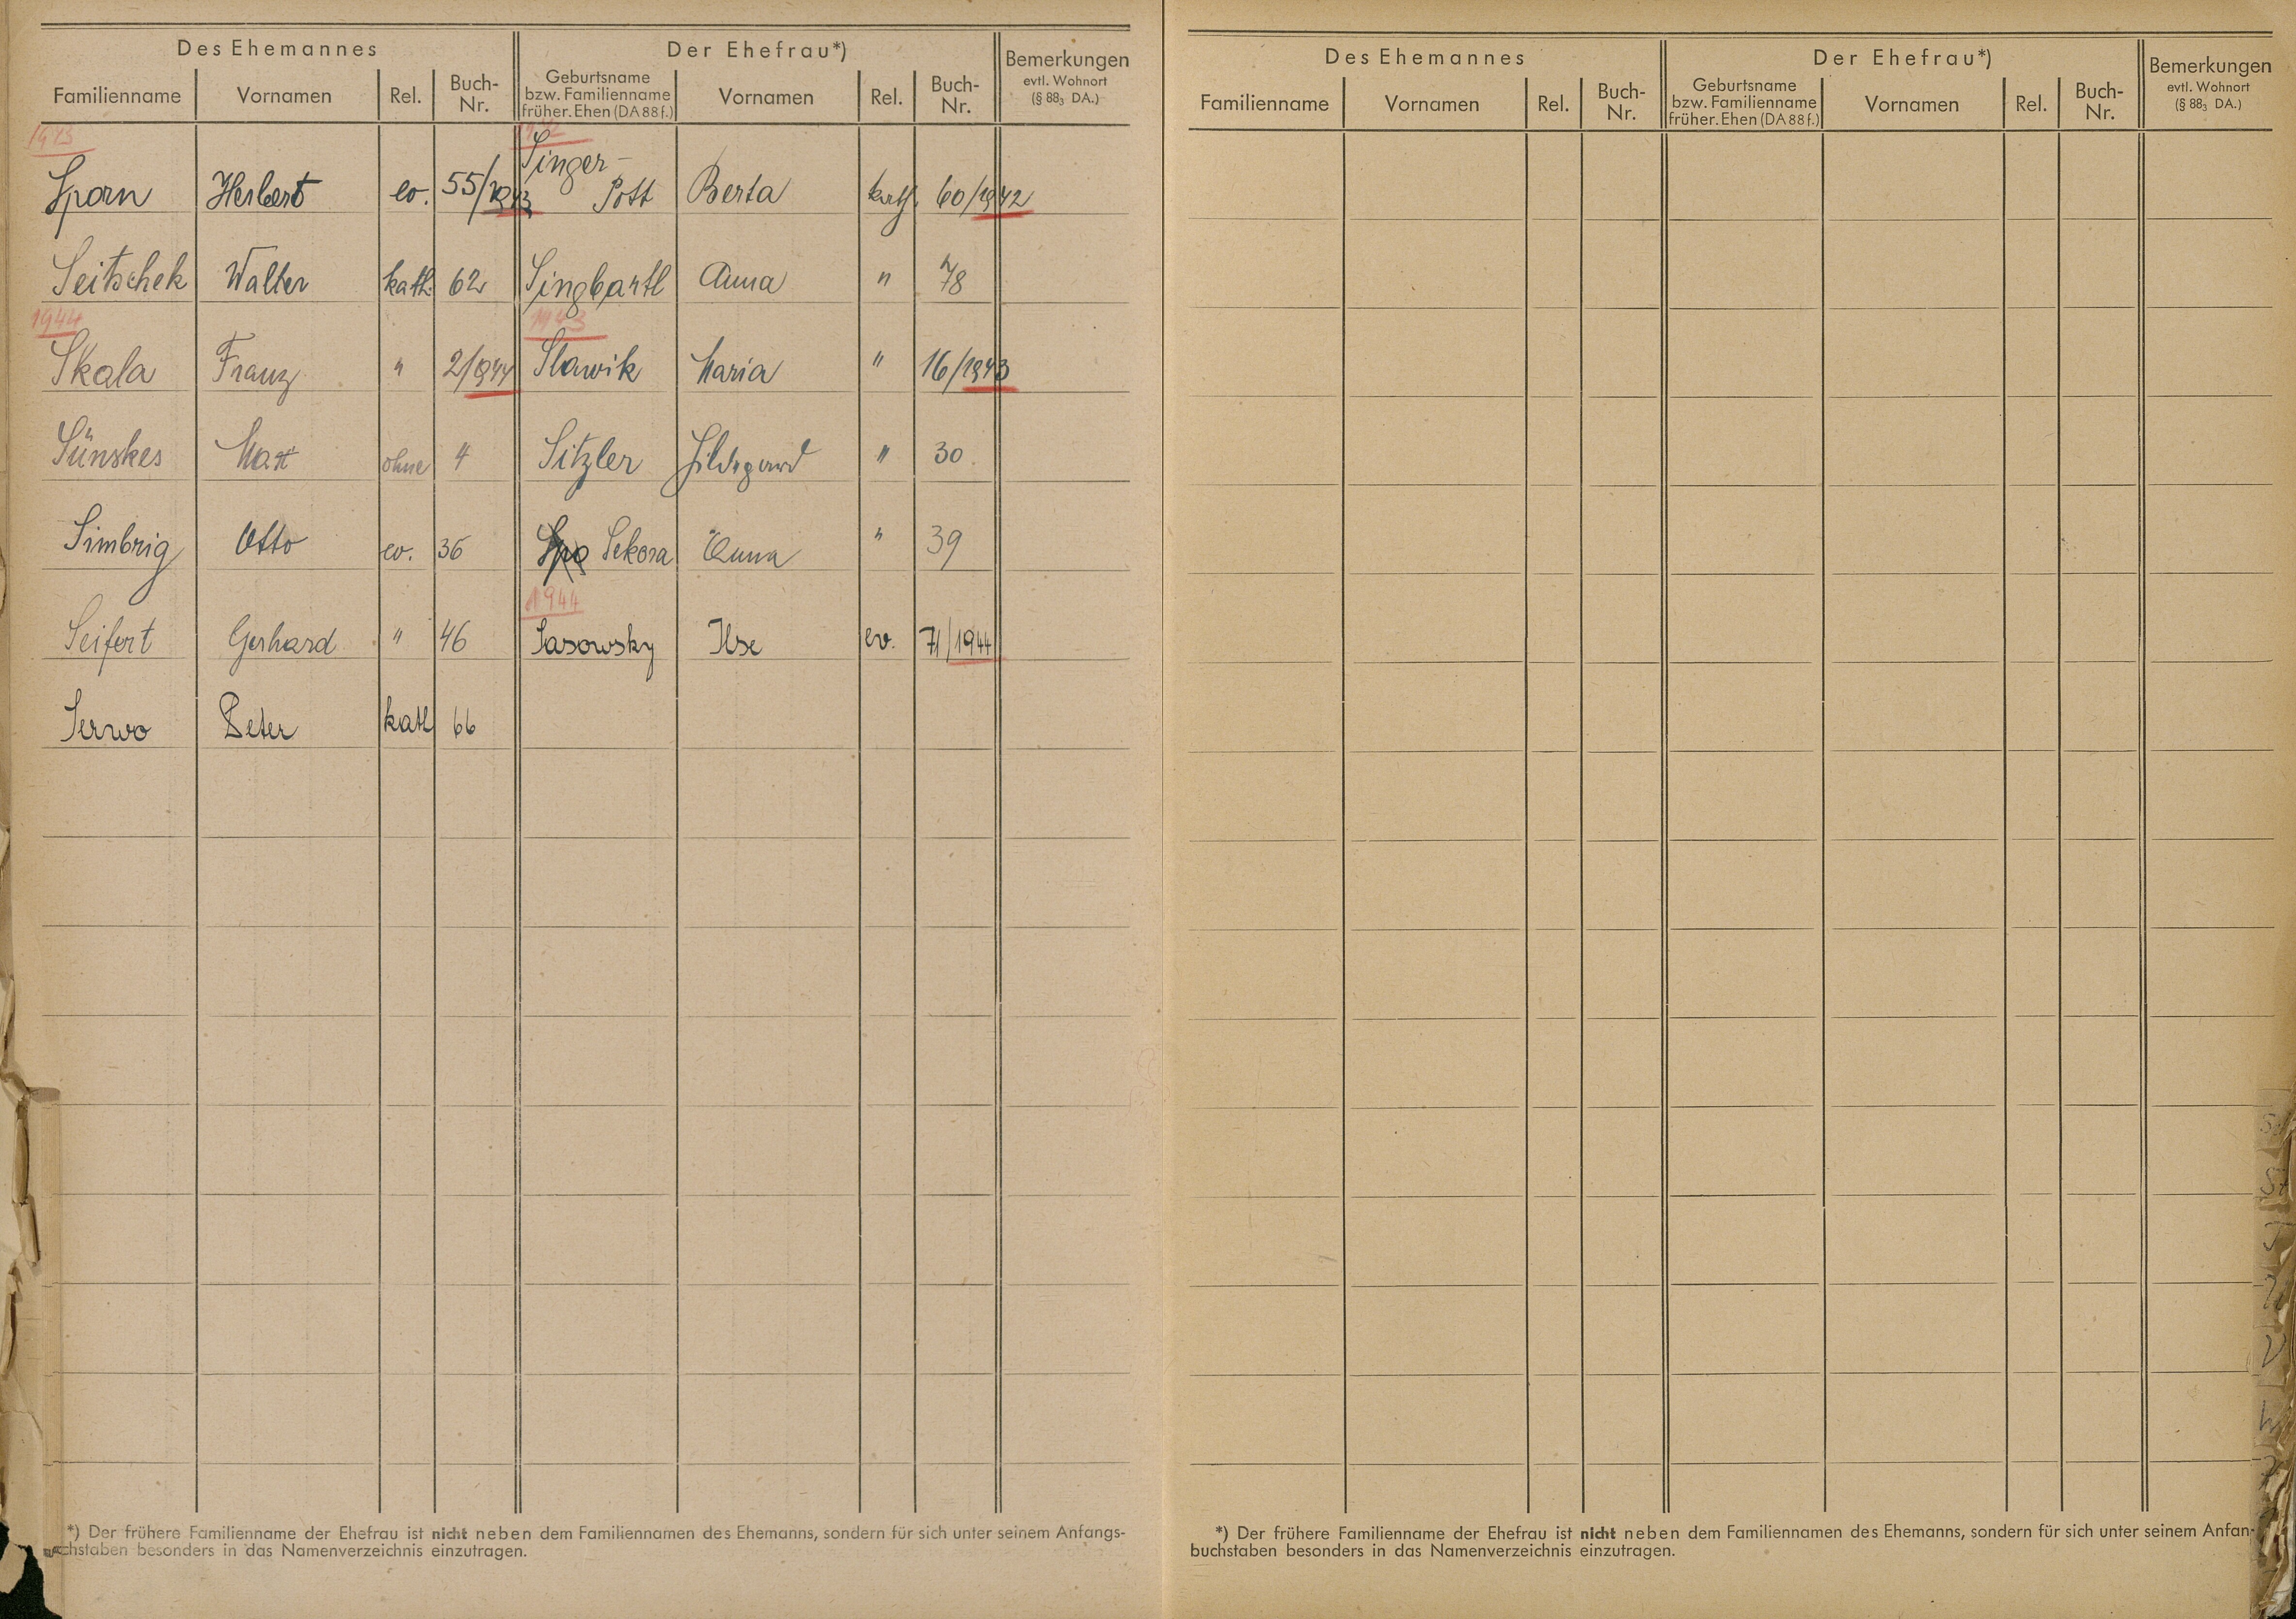 Des Ehemannes Der Ehefrau*) Bemerkungen
evtl. Wohnort
(§ 88₃ DA.)
Familienname Vornamen Rel. Buch-Nr. Geburtsname bzw. Familienname früher. Ehen (DA 88 f.) Vornamen Rel. Buch-Nr.
1943 1942
Sporn Herbert ev. 55/1943 Singer-Pott Berta kath. 60/1942
Seitschek Walter kath. 62 Singbartl Anna " 78
1944 1943
Skala Franz " 2/1944 Slawik Maria " 16/1943
Sünskes Max ohne 4 Sitzler Hildegard " 30
Simbrig Otto ev. 36 Spo Sekora Anna " 39
1944
Seifert Gerhard " 46 Sasowsky Ilse ev. 71/1944
Serwo Peter kath 66
*) Der frühere Familienname der Ehefrau ist nicht neben dem Familiennamen des Ehemanns, sondern für sich unter seinem Anfangs-
chstaben besonders in das Namenverzeichnis einzutragen.
Des Ehemannes Der Ehefrau*) Bemerkungen
evtl. Wohnort
(§ 88₃ DA.)
Familienname Vornamen Rel. Buch-Nr. Geburtsname bzw. Familienname früher. Ehen (DA 88 f.) Vornamen Rel. Buch-Nr.
*) Der frühere Familienname der Ehefrau ist nicht neben dem Familiennamen des Ehemanns, sondern für sich unter seinem Anfan-
buchstaben besonders in das Namenverzeichnis einzutragen.